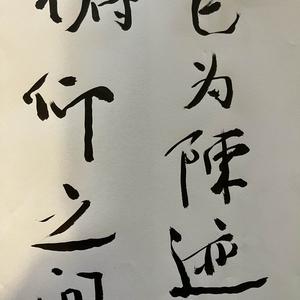 俯仰之间
已为陳迹